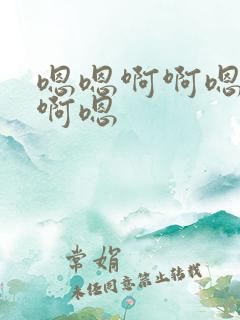 嗯嗯啊啊嗯
啊嗯
常娟
未经同意禁止转载